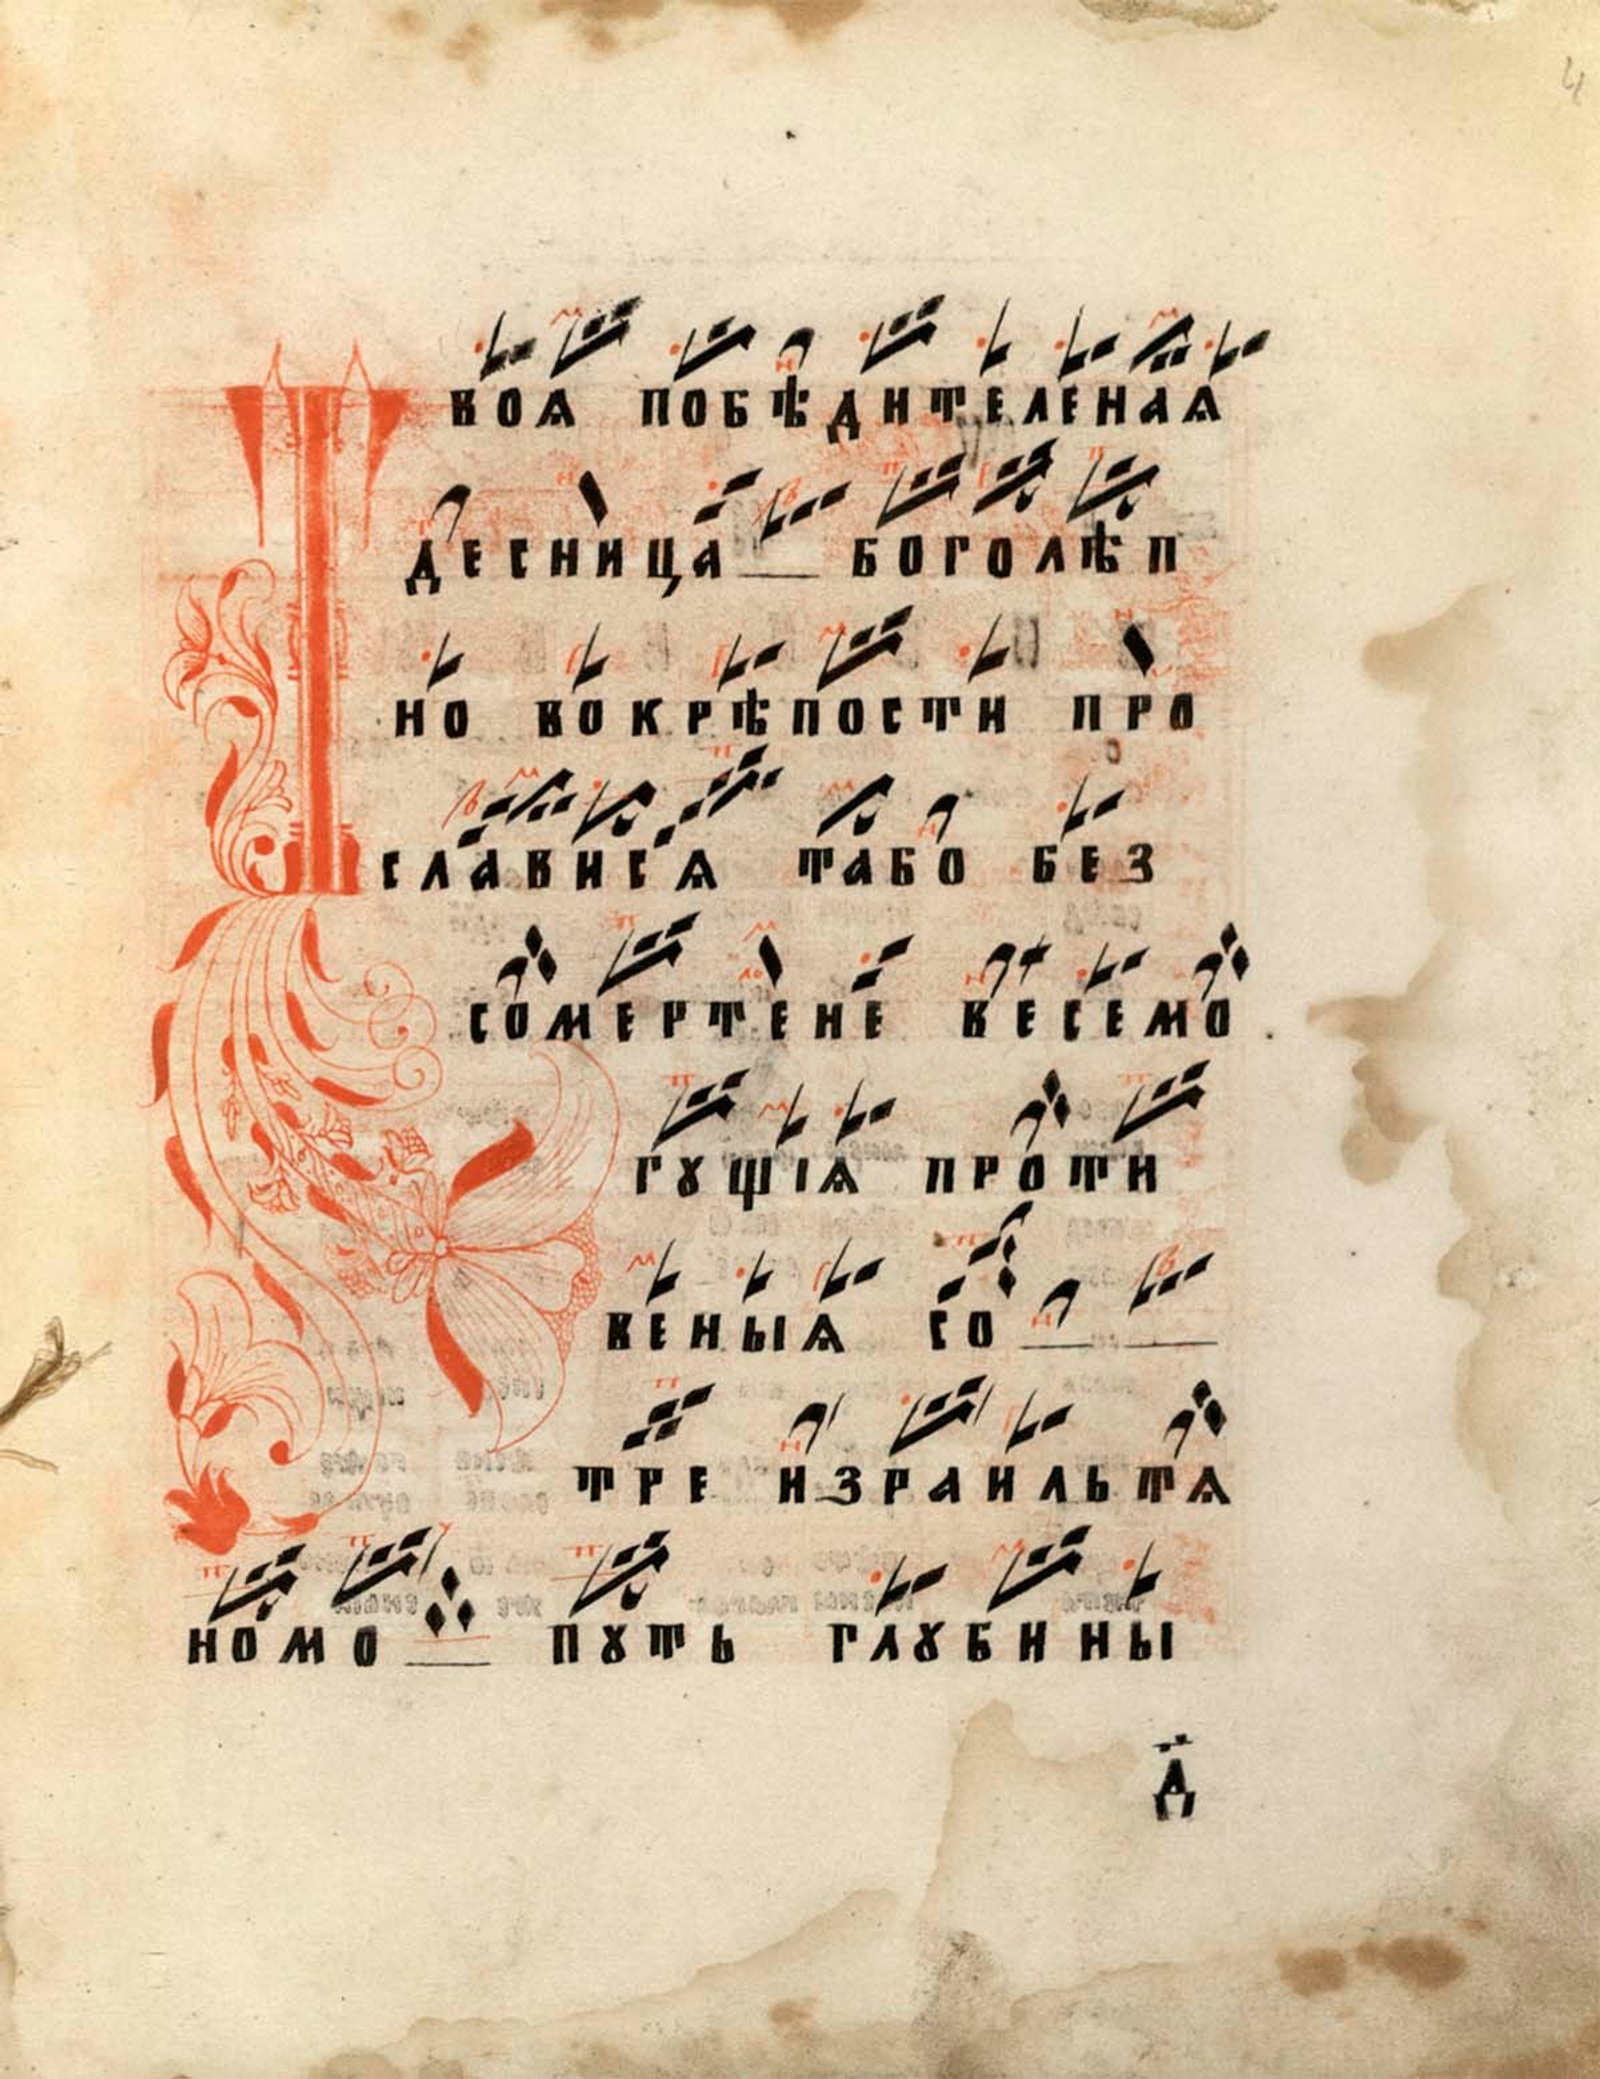 Твоѧ побѣдителенаѧ
десница боголѣп
но вокрѣпости про
слависѧ табо без
сомертене весемо
гꙋщіѧ проти
веныѧ со
тре израильтѧ
номо пꙋть глꙋбины
д